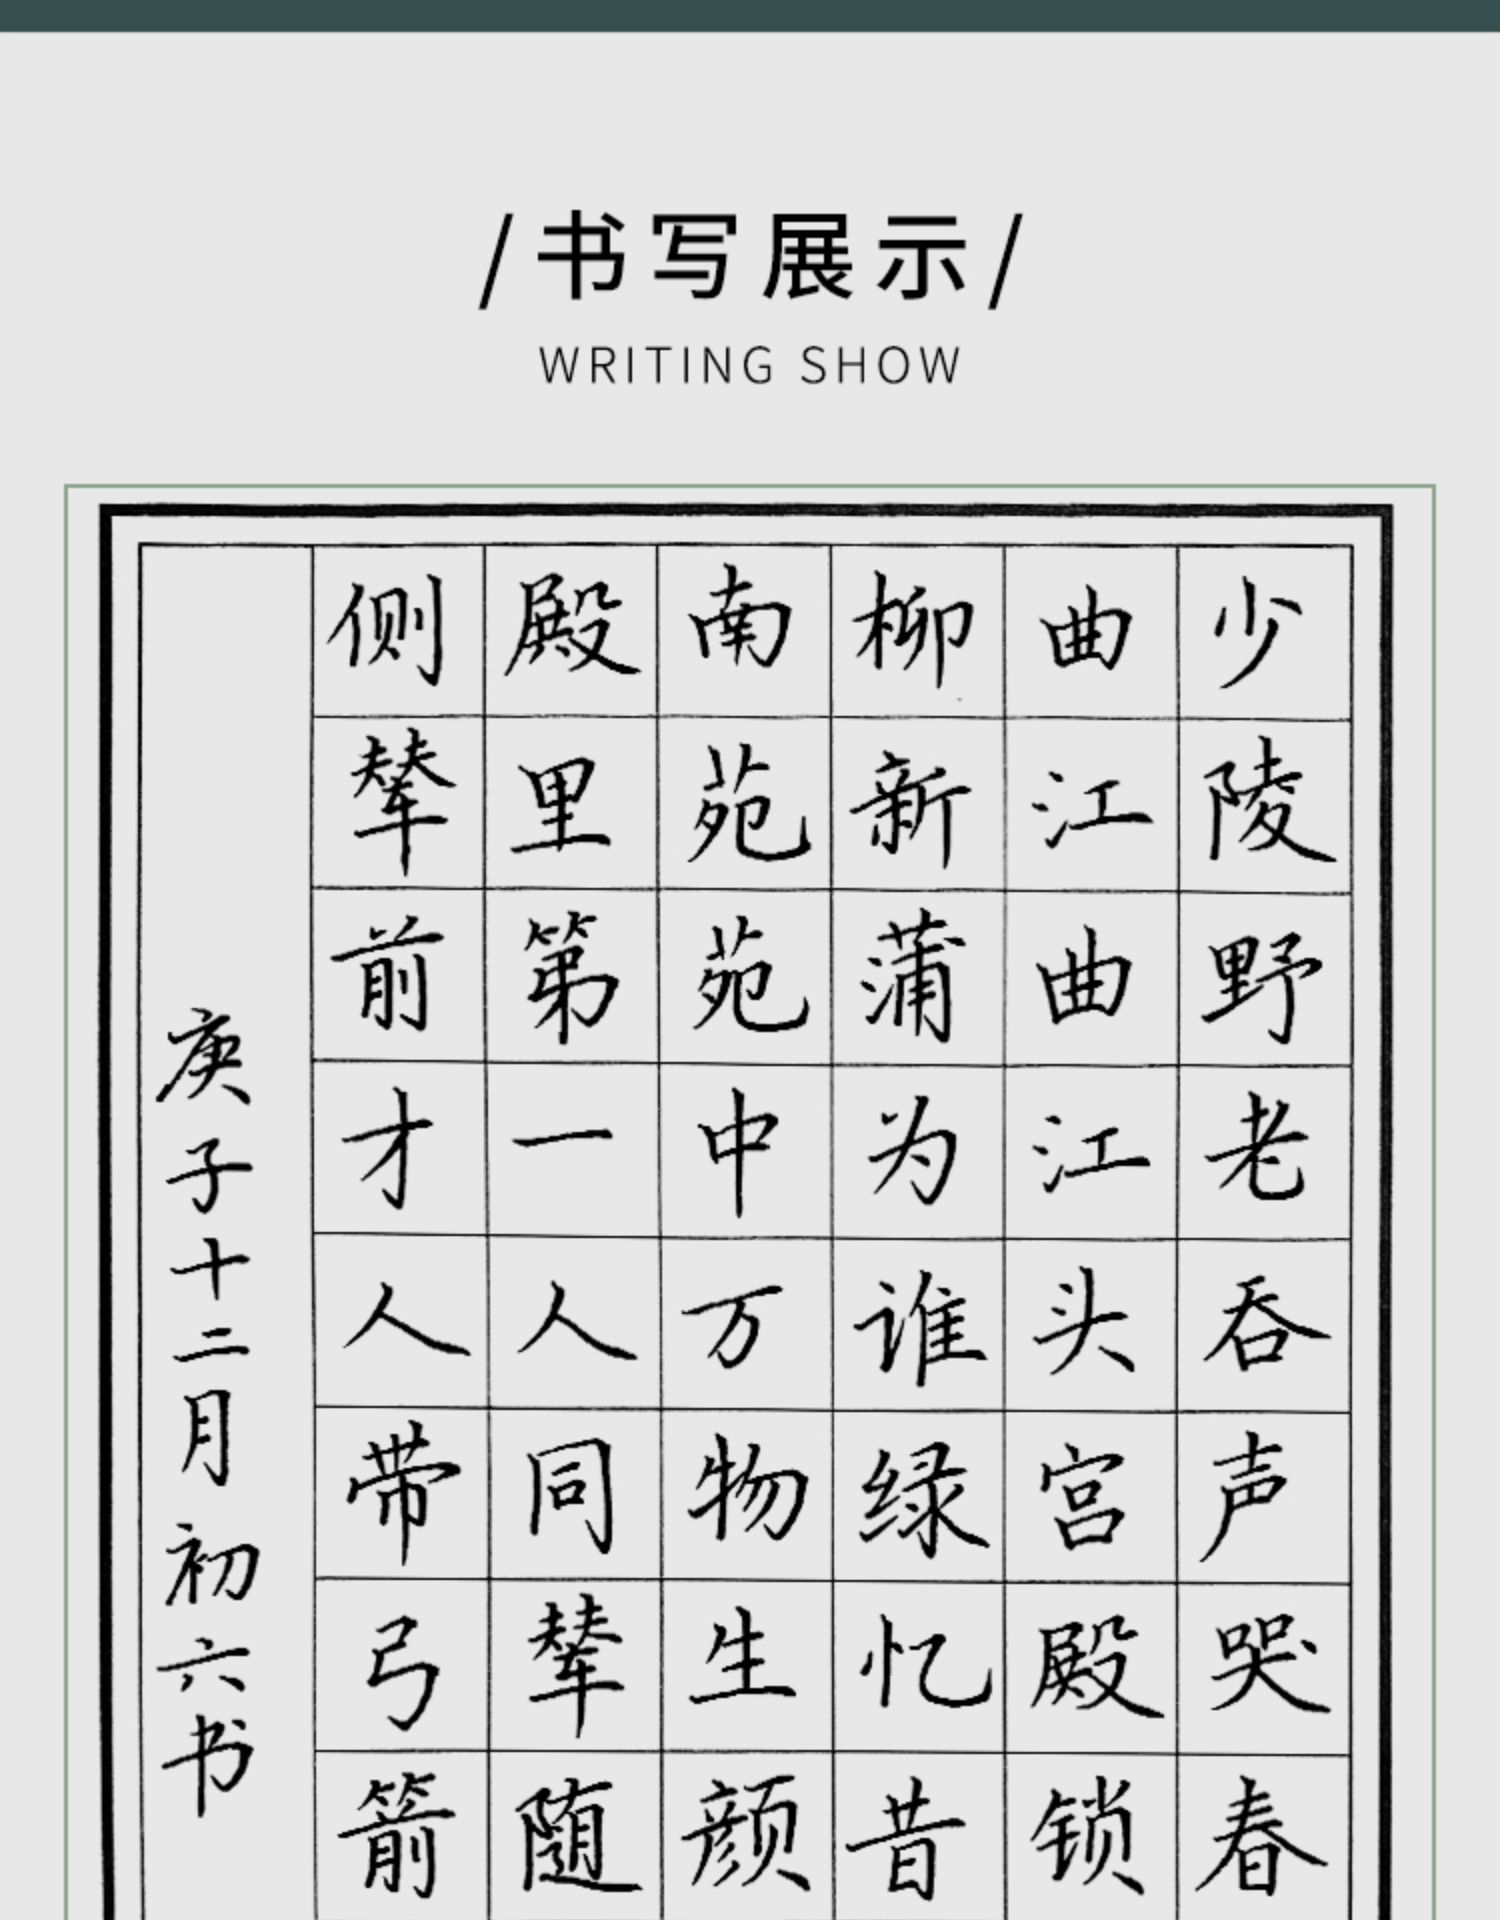 /书写展示/
WRITING SHOW
少陵野老吞声哭春
曲江曲江头宫殿锁
柳新蒲为谁绿忆昔
南苑苑中万物生颜
殿里第一人同辇随
侧辇前才人带弓箭
庚子十二月初六书